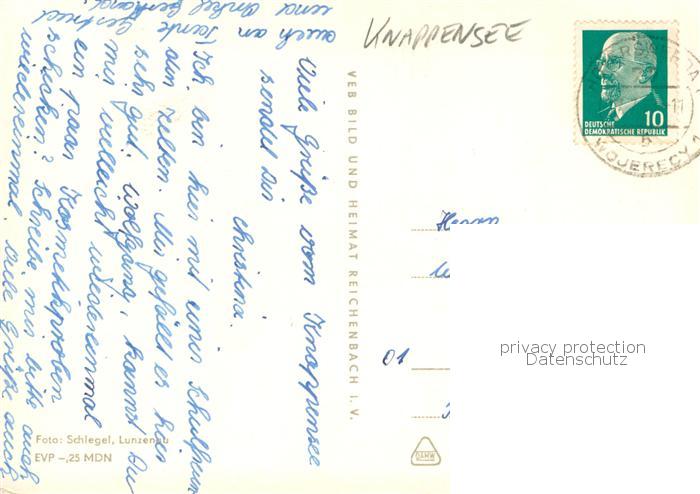 Viele Grüße vom Knappensee
sendet dir
Christina.
Ich bin hier mit einer Schulfreundin
zum Zelten. Mir gefällt es hier
sehr gut. Wolfgang, kannst Du
mir vielleicht wiedereinmal
ein paar Kosmetikproben
schicken? Schreibe mir bitte auch
wiedereinmal. Viele Grüße auch
auch an Tante
und Onkel
KNAPPENSEE
VEB BILD UND HEIMAT REICHENBACH I. V.
Foto: Schlegel, Lunzenau
EVP –,25 MDN
DAMW
10
DEUTSCHE
DEMOKRATISCHE REPUBLIK
WOJERECY
Herrn
01
privacy protection
Datenschutz